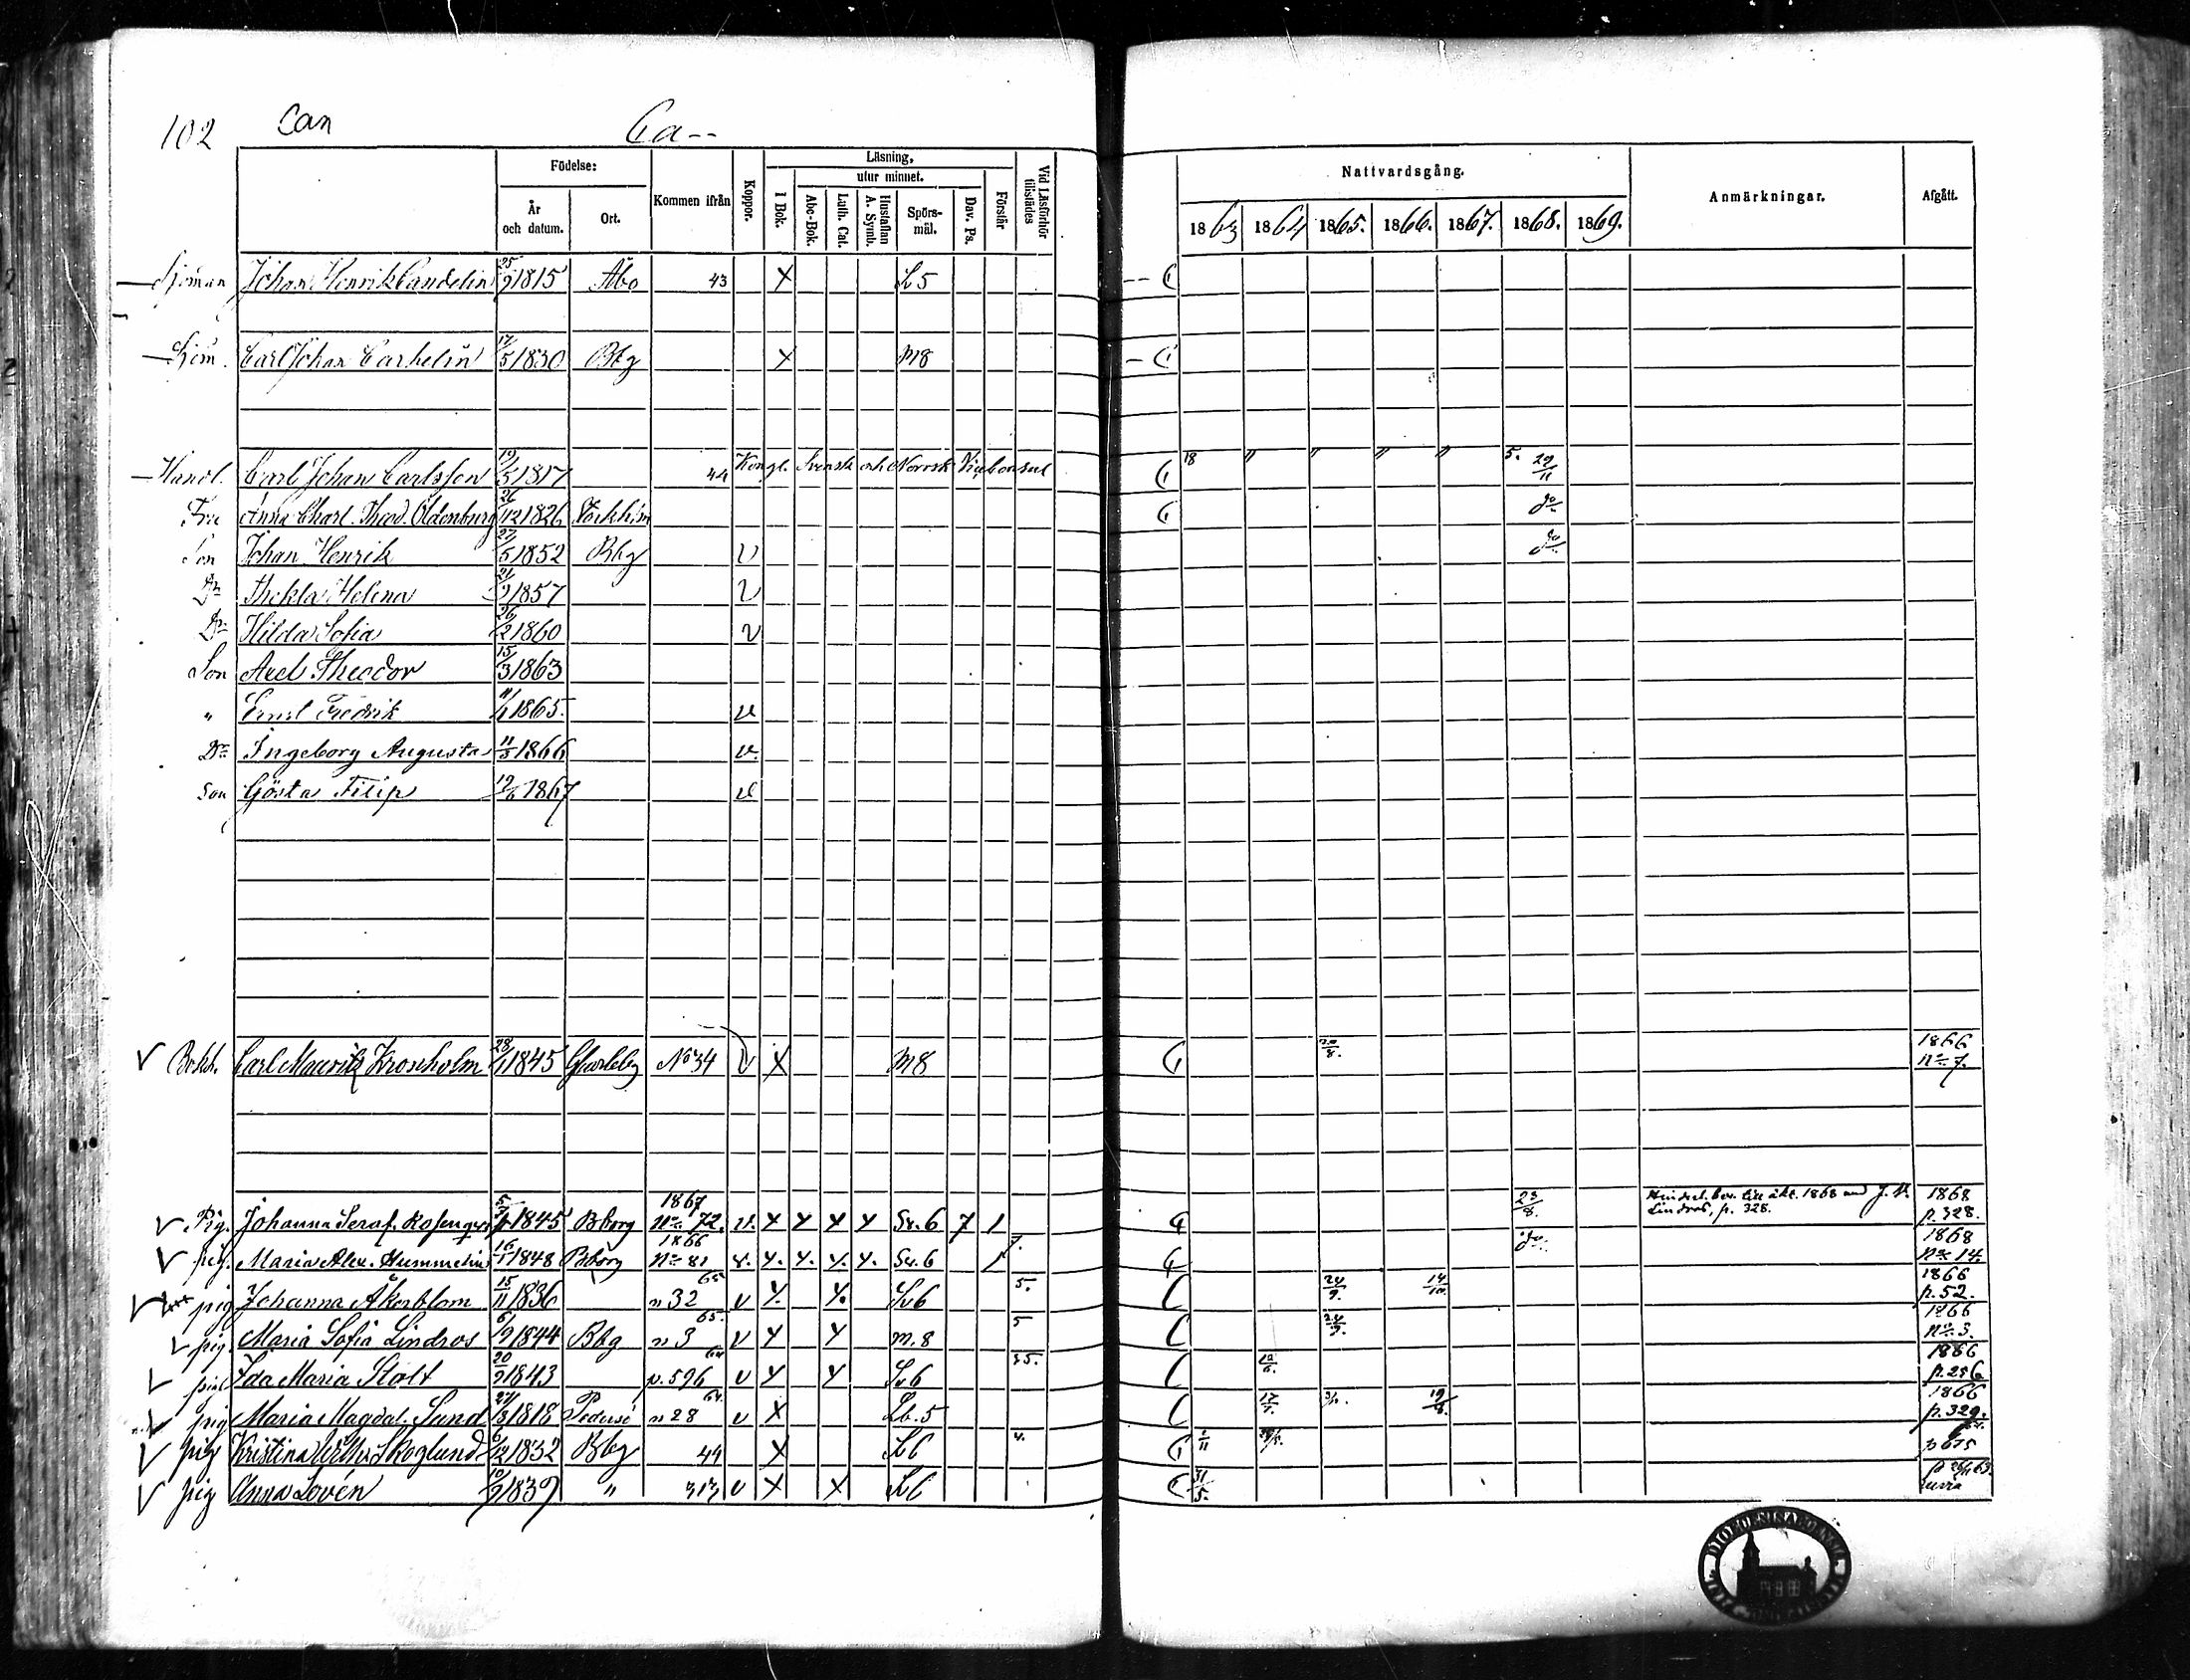 102 Can Ca--
Födelse: Läsning, Nattvardsgång. Anmärkningar. Afgått.
År och datum. Ort. Kommen ifrån Koppor. I Bok. utur minnet. Abc-Bok. Luth. Cat. Hustaflan A. Symb. Spörs-mål. Dav. Ps. Förstår Vid Läsförhör tillstädes 1863 1864 1865. 1866. 1867. 1868. 1869.
Sjöman Johan Henrik Candelin 25/9 1815 Åbo 43 X 5
Sjöm. Carl Johan Carhelin 17/5 1830 Bbg X m8
Handl. Carl Johan Carlsson 19/5 1817 44 Kongl. Svensk och Norrsk Vicekonsul 18 " " " " 5. 29/11
Fru Anna Charl. Theod. Oldenburg 26/12 1826 Stockholm do
Son Johan Henrik 27/5 1852 Bbg v do
Dr Thekla Helena 21/9 1857 v
Dr Hilda Sofia 26/2 1860 v
Son Axel Theodor 15/3 1863
" Ernst Fredrik 11/1 1865. v
Dr Ingeborg Augusta 11/3 1866 v.
Son Gösta Filip 19/6 1867 v
Bokh. Carl Mauritz Kroxholm 28/1 1845 Gkarleby No 34 v X m8 20/8. 1866 No 7.
Pig. Johanna Seraf. Rosengren 1845 Bborg 1867 No 72. v. x x x x Sv. 6 7 1 23/8. 1868 J. Lindros, p. 328. 1868 p. 328.
pig. Maria Alex. Hummelin 16/1 1848 Bborg 1866 No 81 v. x. x. x. x. Sv. 6 do 1868 No 14.
pig Johanna Åkerblom 15/11 1836 n 32 65 v x x. Sv6 5. 24/9. 14/10. 1866 p. 52.
pig. Maria Sofia Lindros 6/9 1844 Bbg n 3 65. v x x m. 8 5 24/9. 1866 No 3.
pig Ida Maria Stolt 20/9 1843 p. 596 64 v x x Sv6 1866 p. 256
pig Maria Magdal. Sund 27/3 1818 Pedersö n 28 64. v X 5 17/7. 19/8. 1866 p. 329.
pig Kristina Skoglund 6/12 1832 Bbg 44 X 6 4. p 675
pig Anna Lovén 10/9 1839 " v X X 6 31/5.